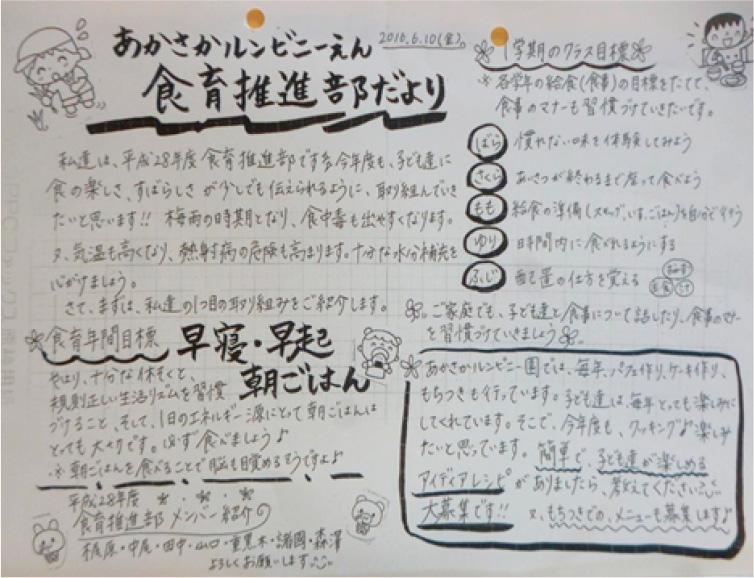 あかさかルンビニーえん
2016.6.10(金)。
食育推進部だより
私達は、平成28年度 食育推進部です 今年度も、子ども達に
食の楽しさ、すばらしさ が少しでも伝えられるように、取り組んでいき
たいと思います!! 梅雨の時期となり、食中毒も出やすくなります。
又、気温も高くなり、熱射病の危険も高まります。十分な水分補充を
心がけましょう。
さて、まずは、私達の1つ目の取り組みをご紹介します。
食育年間目標
早寝・早起
朝ごはん
やはり、十分な休そくと、
規則正しい生活リズムを習慣
づけること、そして、1日のエネルギー源にとって朝ごはんは
とっても大切です。必ず食べましょう♪
※朝ごはんを食べることで脳も目覚めるそうですよ♪
平成28年度
食育推進部 メンバー紹介
梶原・中尾・田中・山口・重黒木・諸岡・森澤
よろしくお願いします
1学期のクラス目標
※各学年の給食(食事)の目標をたてて、
食事のマナーも習慣づけていきたいです。
ばら 慣れない味を体験してみよう
さくら あいさつが終わるまで座って食べよう
もも 給食の準備(スモック、いす、ごはん)を自分で行う
ゆり 時間内に食べれるようにする
ふじ 配置の仕方を覚える
ご家庭でも、子ども達と食事について話したり、食事のマナー
を習慣づけていきましょう
あかさかルンビニー園では、毎年、パフェ作り、ケーキ作り、
もちつきも行っています。子ども達は、毎年とっても楽しみに
してくれています。そこで、今年度も、クッキング♪楽しみ
たいと思っています。簡単で、子ども達が楽しめる
アイディアレシピがありましたら、教えてください
大募集です!! 又、もちつきでの、メニューも募集します♪